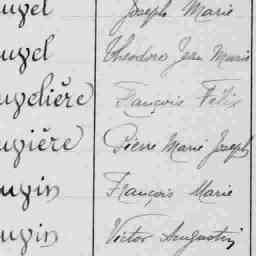 uyel Joseph Marie
uyel Théodore Jean Marie
uyelière François Félix
uyière Pierre Marie Joseph
uyin François Marie
uyin Victor Augustin